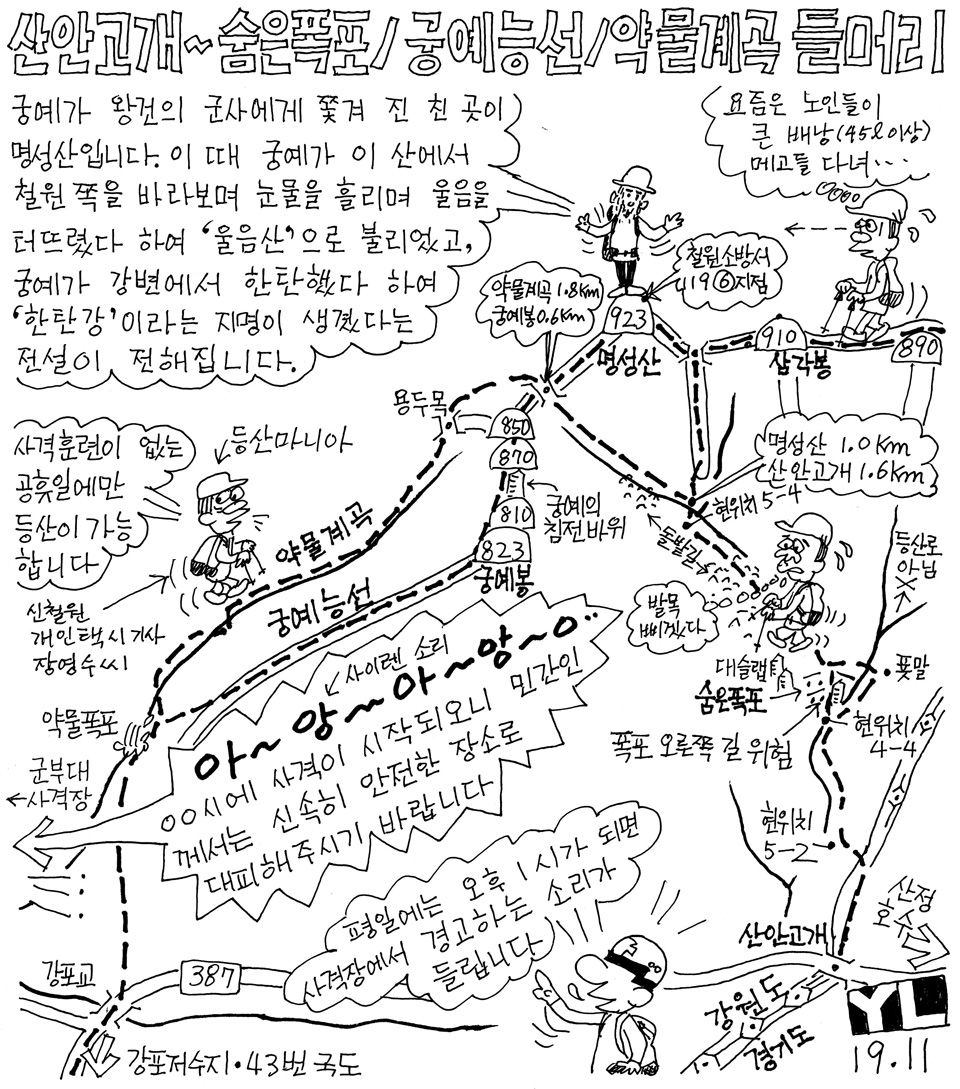 산안고개~숨은폭포/궁예능선/약물계곡 들머리
궁예가 왕건의 군사에게 쫓겨 진 친 곳이
명성산입니다. 이 때 궁예가 이 산에서
철원 쪽을 바라보며 눈물을 흘리며 울음을
터뜨렸다 하여 '울음산'으로 불리었고,
궁예가 강변에서 한탄했다 하여
'한탄강'이라는 지명이 생겼다는
전설이 전해집니다.
요즘은 노인들이
큰 배낭(45ℓ이상)
메고들 다녀...
철원소방서
119⑥지점
약물계곡 1.8km
궁예봉 0.6km
923
명성산
910
삼각봉
890
용두목
850
870
810
823
궁예봉
궁예의
침전바위
명성산 1.0km
산안고개 1.6km
현위치
5-4
사격훈련이 없는
공휴일에만
등산이 가능
합니다
등산마니아
신철원
개인택시기사
장영수씨
약물계곡
궁예능선
돌발길
발목
삐겠다
등산로
아님
대슬랩
숨은폭포
푯말
현위치
4-4
폭포 오른쪽 길 위험
현위치
5-2
약물폭포
군부대
사격장
사이렌 소리
아~앙~아~앙~0..
00시에 사격이 시작되오니 민간인
께서는 신속히 안전한 장소로
대피해주시기 바랍니다
평일에는 오후 1시가 되면
사격장에서 경고하는 소리가
들립니다
산안고개
산정
호수
강포교
387
강원도
경기도
강포저수지·43번 국도
YL
19.11